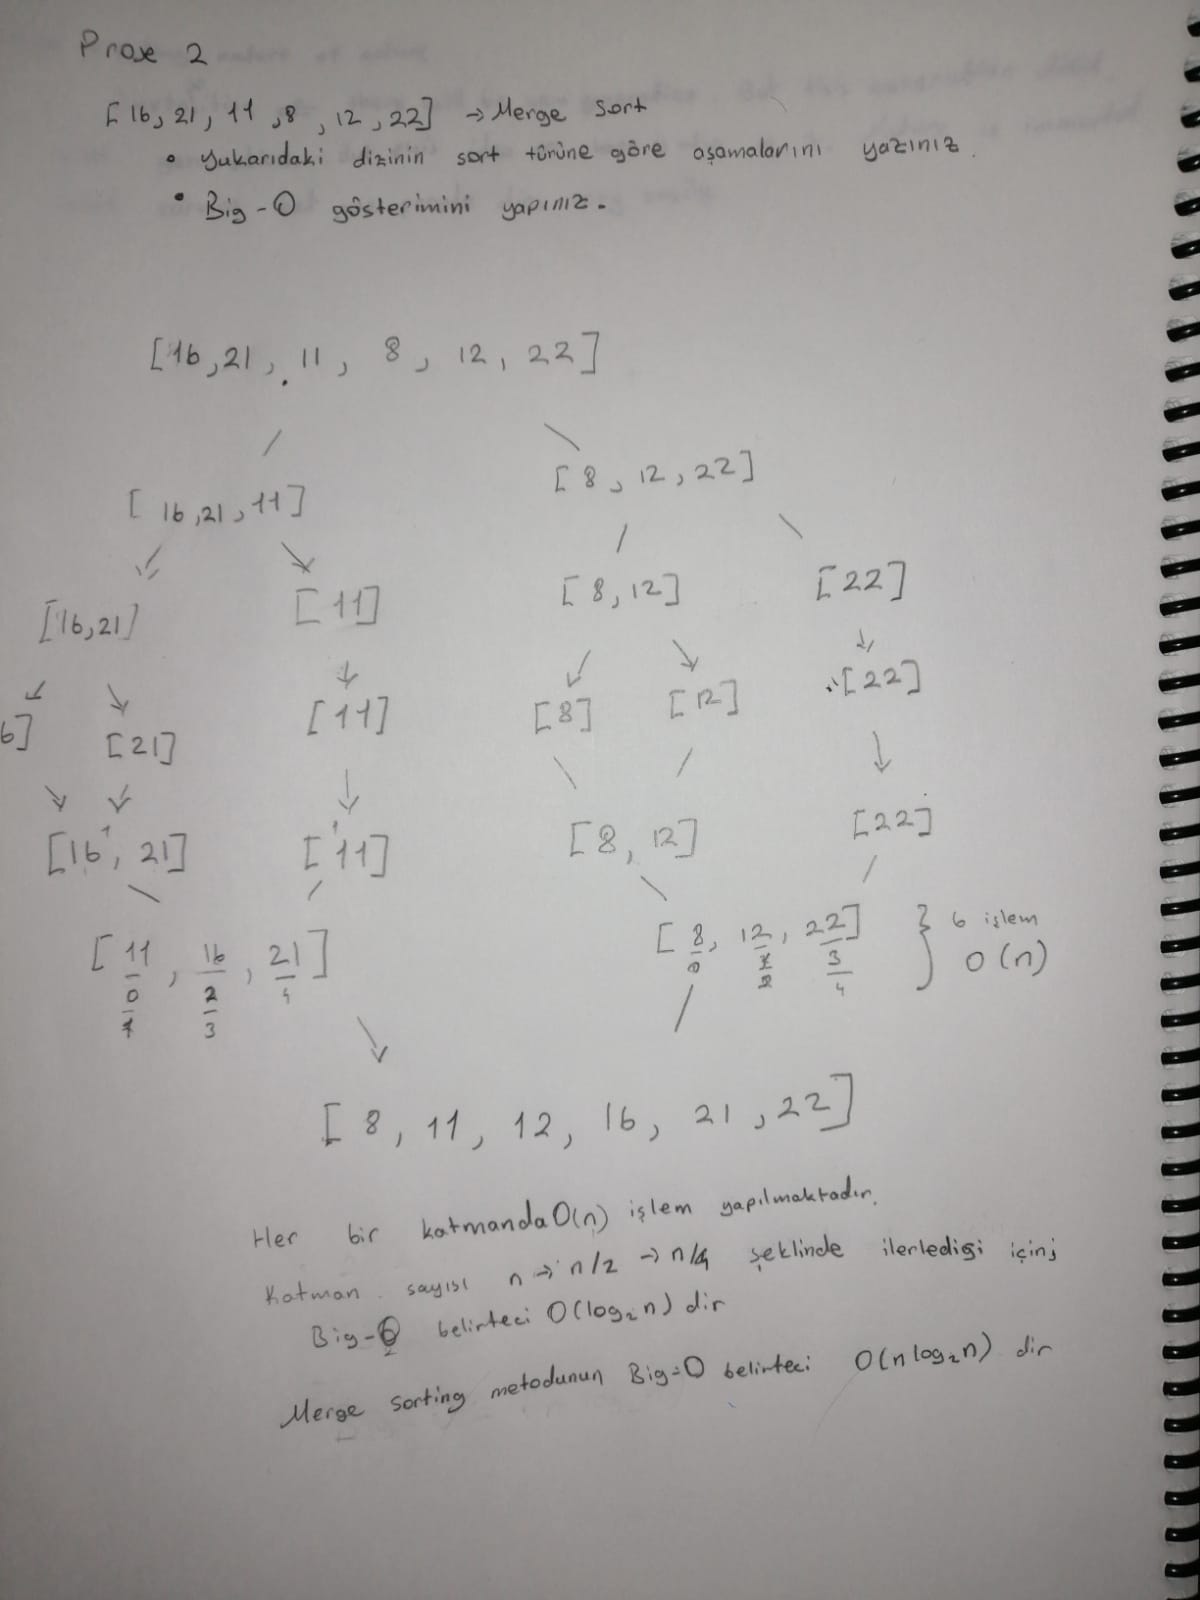 Proje 2
[16, 21, 11, 8, 12, 22] → Merge Sort
• Yukarıdaki dizinin sort türüne göre aşamalarını yazınız.
• Big-O gösterimini yapınız.
[16, 21, 11, 8, 12, 22]
[16, 21, 11] [8, 12, 22]
[16, 21] [11] [8, 12] [22]
6] [21] [11] [8] [12] [22]
[16, 21] [11] [8, 12] [22]
[11, 16, 21] [8, 12, 22] } 6 işlem
0 2 4 0 3 O(n)
3 4
[8, 11, 12, 16, 21, 22]
Her bir katmanda O(n) işlem yapılmaktadır.
Katman sayısı n → n/2 → n/4 şeklinde ilerlediği için;
Big-O belirteci O(log₂n) dir
Merge sorting metodunun Big-O belirteci O(nlog₂n) dir